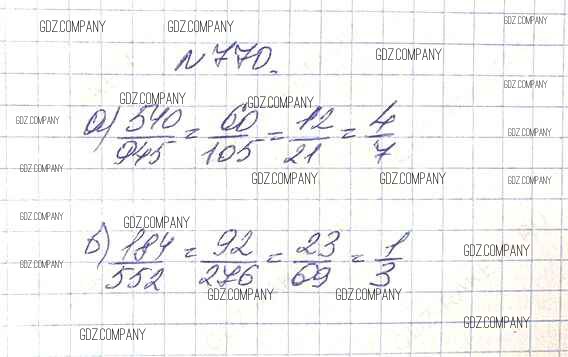 GDZ.COMPANY GDZ.COMPANY GDZ.COMPANY
№770. GDZ.COMPANY
GDZ.COMPANY GDZ.COMPANY GDZ.COMPANY
а) 540/945 = 60/105 = 12/21 = 4/7
GDZ.COMPANY GDZ.COMPANY
GDZ.COMPANY GDZ.COMPANY GDZ.COMPANY GDZ.COMPANY
GDZ.COMPANY GDZ.COMPANY
б) 184/552 = 92/276 = 23/69 = 1/3
GDZ.COMPANY GDZ.COMPANY
GDZ.COMPANY GDZ.COMPANY
GDZ.COMPANY GDZ.COMPANY